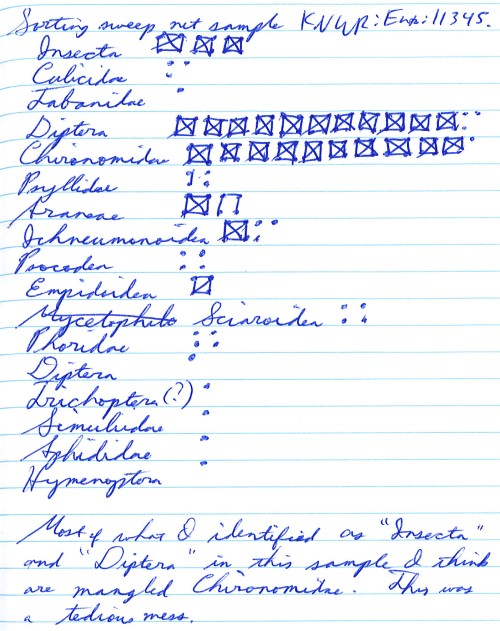 Sorting sweep net sample KNWR:Ento:11345.
Insecta
Culicidae
Tabanidae
Diptera
Chironomidae
Psyllidae
Araneae
Ichneumonoidea
Psocodea
Empidoidea
Mycetophilo Sciaroidea
Phoridae
Diptera
Trichoptera(?)
Simuliidae
Aphididae
Hymenoptera
Most of what I identified as "Insecta"
and "Diptera" in this sample I think
are mangled Chironomidae. This was
a tedious mess.